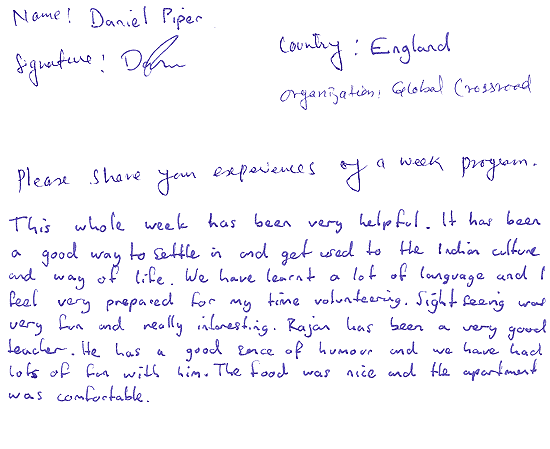 Name: Daniel Piper
Country: England
Signature:
Organization: Global Crossroad
Please share your experiences of a week program.
This whole week has been very helpful. It has been
a good way to settle in and get used to the Indian culture
and way of life. We have learnt a lot of language and I
feel very prepared for my time volunteering. Sight seeing was
very fun and really interesting. Rajan has been a very good
teacher. He has a good sence of humour and we have had
lots of fun with him. The food was nice and the apartment
was comfortable.